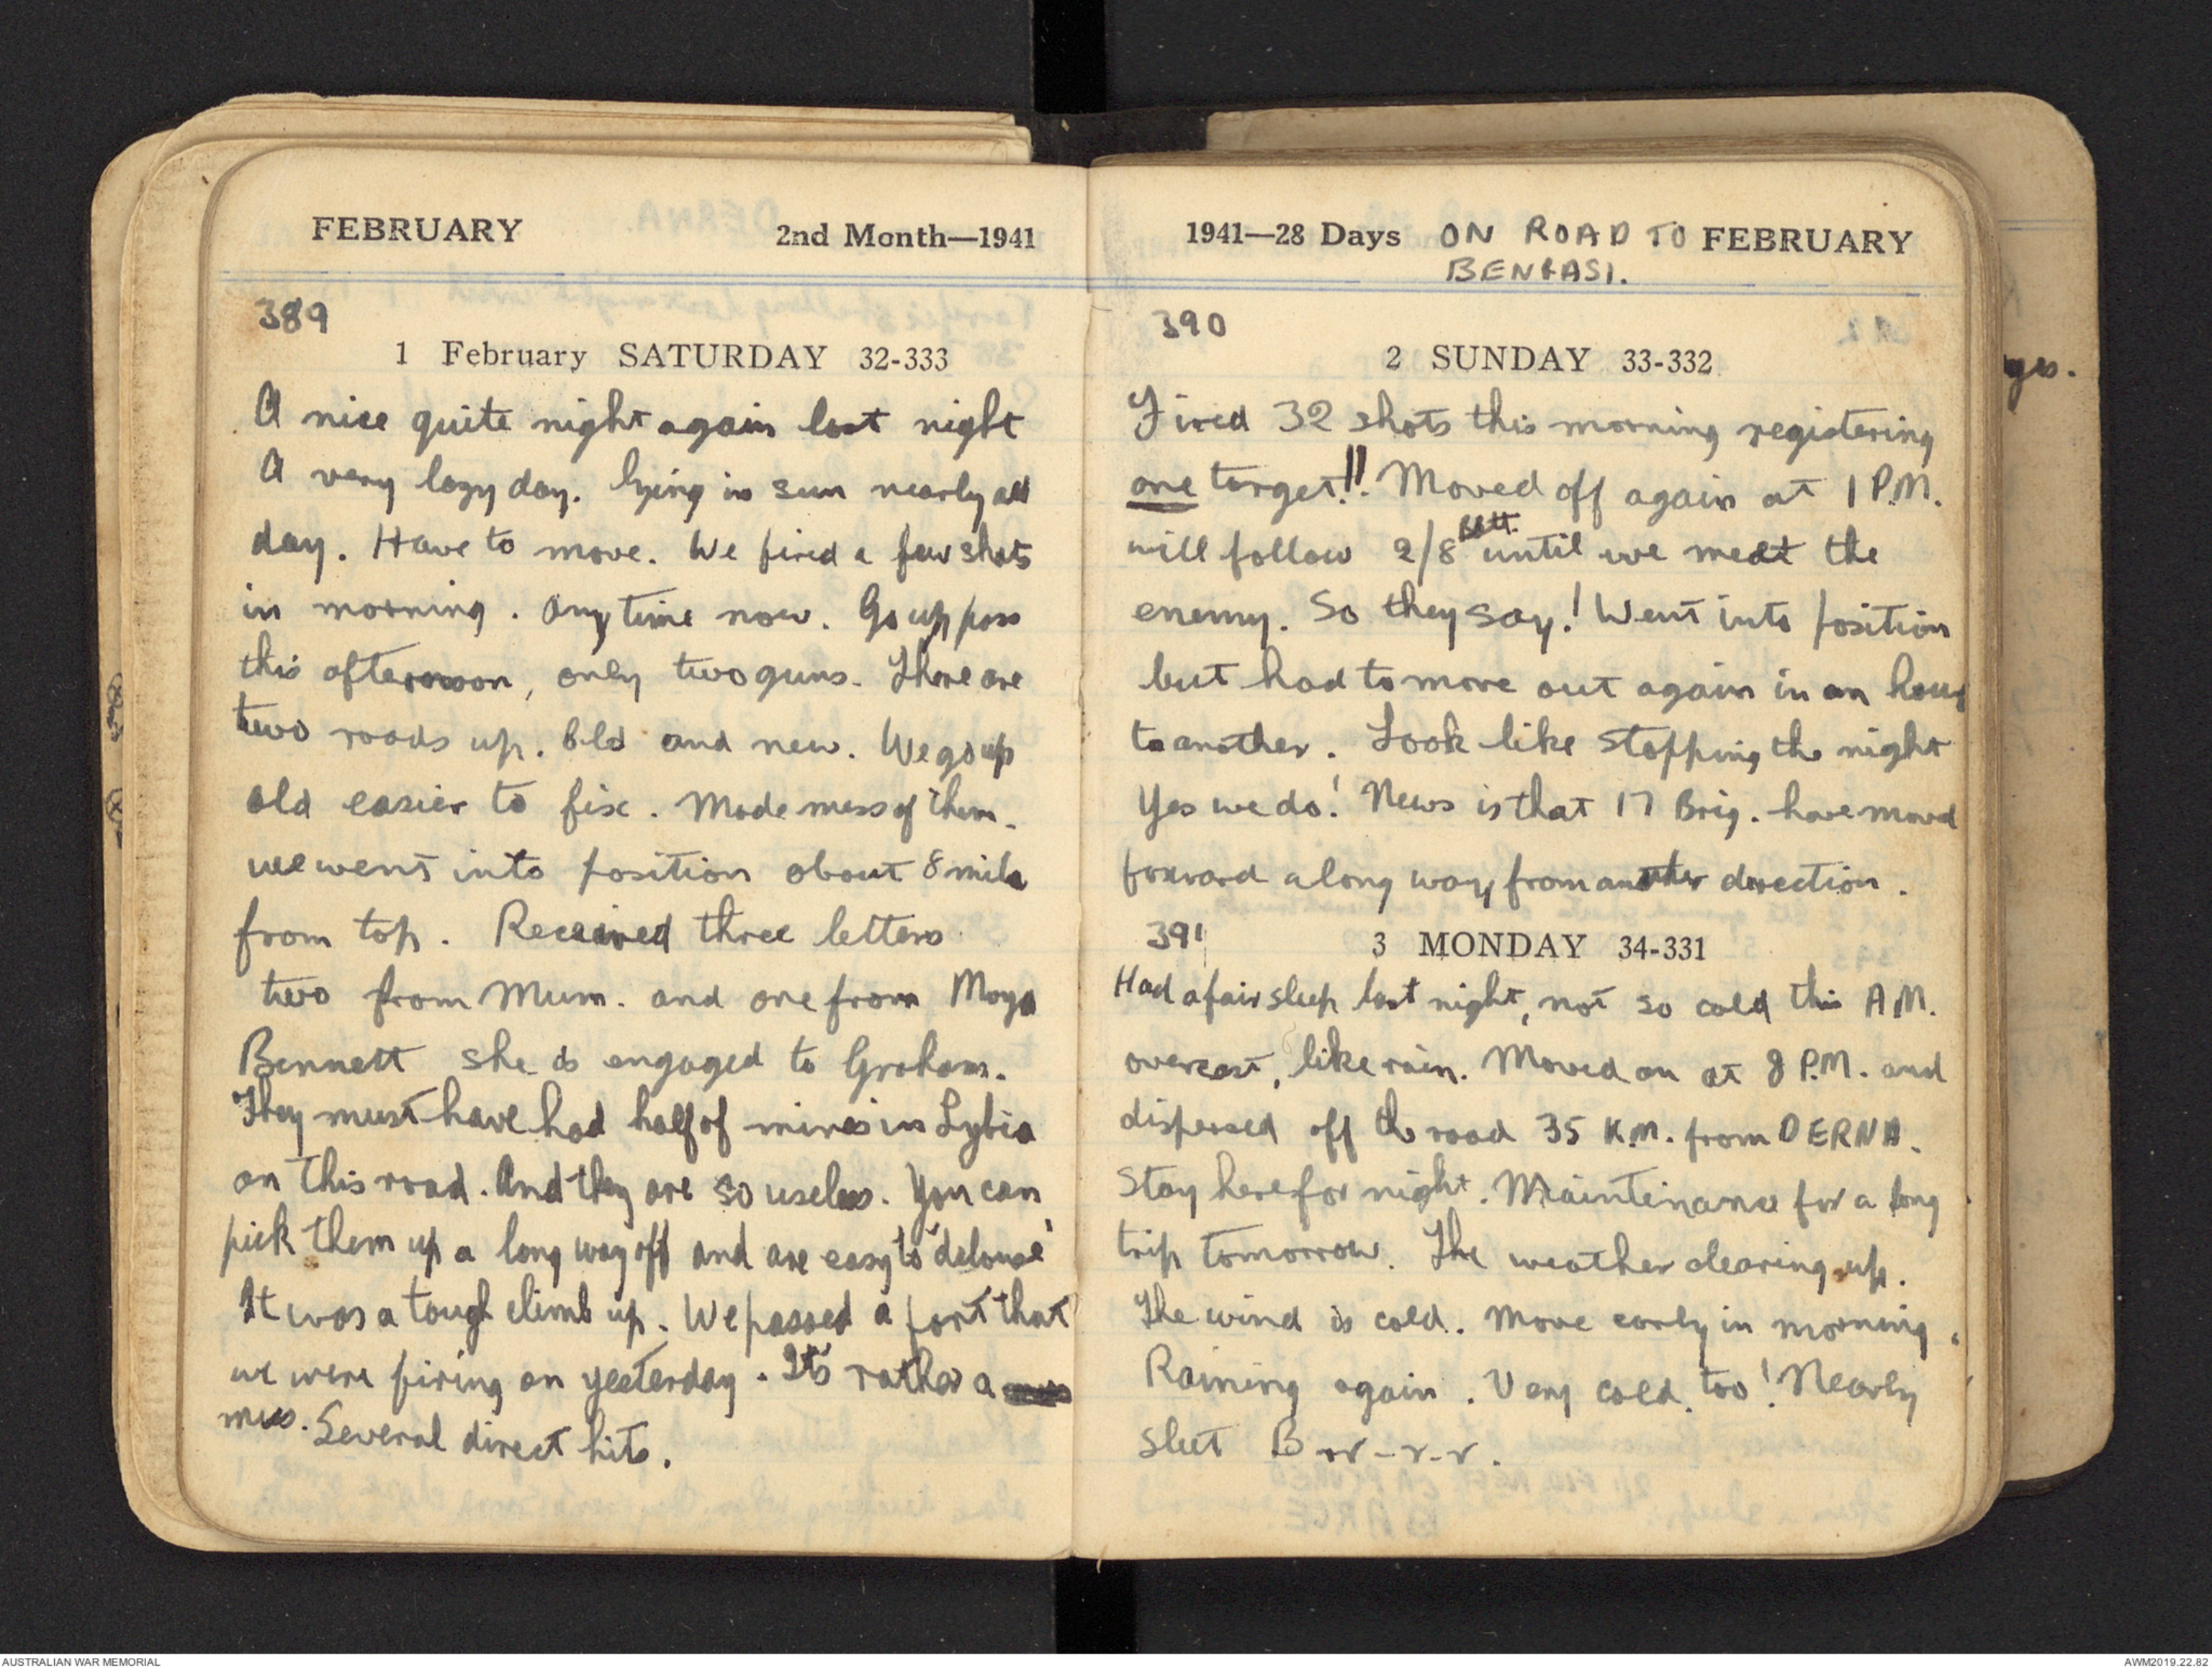 FEBRUARY 2nd Month—1941
389
1 February SATURDAY 32-333
A nice quite night again last night
A very lazy day. lying in sun nearly all
day. Have to move. We fired a few shots
in morning. Any time now. Go up pass
this afternoon, only two guns. There are
two roads up. Old and new. We go up
old easier to fix. Made mess of them.
we went into position about 8 mile
from top. Received three letters
two from Mum. and one from Moya
Bennett she is engaged to Graham.
They must have had half of mines in Lybia
on this road. And they are so useless. You can
pick them up a long way off and are easy to "delouse"
It was a tough climb up. We passed a fort that
we were firing on yesterday. It's rather a
mess. Several direct hits.
1941—28 Days ON ROAD TO FEBRUARY
BENGASI.
390
2 SUNDAY 33-332
Fired 32 shots this morning registering
one target!!. Moved off again at 1 P.M.
will follow 2/8 Batt. until we meet the
enemy. So they say! Went into position
but had to move out again in an hour
to another. Look like stopping the night
Yes we do! News is that 17 Brig. have moved
forward a long way from another direction.
391
3 MONDAY 34-331
Had a fair sleep last night, not so cold this A.M.
overcast, like rain. Moved on at 8 P.M. and
dispersed off the road 35 K.M. from DERNA.
Stay here for night. Maintinance for a long
trip tomorrow. The weather clearing up.
The wind is cold. Move early in morning.
Raining again. Very cold. too! Nearly
sleet B rr-r-r.
ges.
AUSTRALIAN WAR MEMORIAL AWM2019.22.82